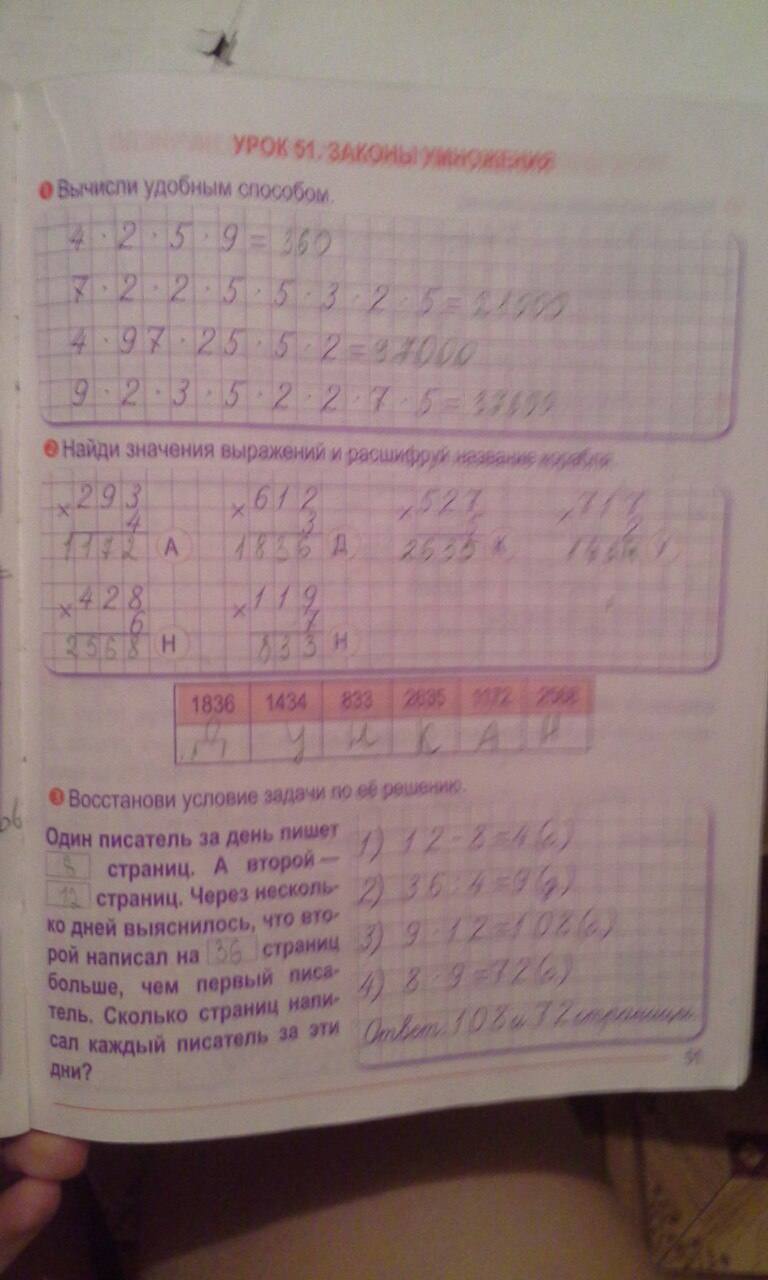 УРОК 51. ЗАКОНЫ УМНОЖЕНИЯ
1 Вычисли удобным способом.
4 · 2 · 5 · 9 = 360
7 · 2 · 2 · 5 · 5 · 3 · 2 · 5 = 21000
4 · 97 · 25 · 5 · 2 = 97000
9 · 2 · 3 · 5 · 2 · 2 · 7 · 5 =
2 Найди значения выражений и расшифруй название корабля.
×293 ×612 ×527 ×717
4 3 5 2
1172 А 1836 Д 2635 К 1434 У
×428 ×119
6 7
2568 Н 833 Н
1836 1434 833 2635 1172 2568
Д У Н К А Н
3 Восстанови условие задачи по её решению.
Один писатель за день пишет
8 страниц. А второй —
12 страниц. Через несколь-
ко дней выяснилось, что вто-
рой написал на 36 страниц
больше, чем первый писа-
тель. Сколько страниц напи-
сал каждый писатель за эти
дни?
1) 12 - 8 = 4 (с)
2) 36 : 4 = 9 (д)
3) 9 · 12 = 108 (с)
4) 8 · 9 = 72 (с)
Ответ: 108 и 72 страницы.
51